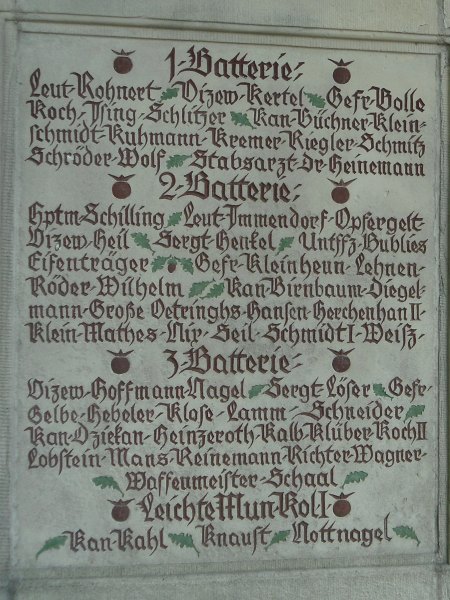 1·Batterie:
Leut·Rohnert Vizew·Kertel Gefr·Bolle
Koch·Ising·Schlitzer Kan·Büchner·Klein-
schmidt·Kuhmann·Kremer·Riegler·Schmitz
Schröder·Wolf Stabsarzt·Dr·Heinemann
2·Batterie:
Hptm·Schilling Leut·Immendorf·Opfergelt
Vizew·Heil Sergt·Henkel Untffz·Hublies
Eifenträger Gefr·Kleinhenn·Lehnen·
Röder·Wilhelm Kan·Birnbaum·Diegel-
mann·Große·Oetringhs·Hansen·Herchenhan II·
Klein·Mathes·Nix·Seil·Schmidt I·Weiß
3·Batterie:
Vizew·Hoffmann·Nagel Sergt·Löser Gefr·
Gelbe·Hebeler·Klose·Lamm·Schneider
Kan·Dziekan·Heinzeroth·Kalb·Klüber·Koch II
Lobstein·Mans·Reinemann·Richter·Wagner·
Waffenmeister·Schaal
Leichte Mun·Kol·I
Kan·Kahl Knaust Nottnagel